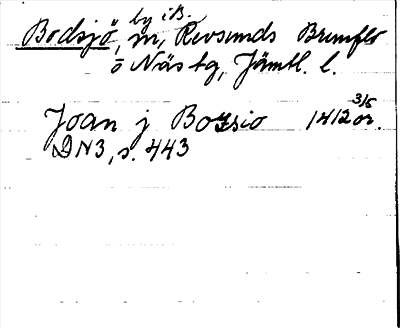 Bodsjö, by i B. m, Revsunds Brunflo
o Näs tg, Jämtl. l.
Joan j Bozsio 1412 3/5 or.
DN3, s. 443